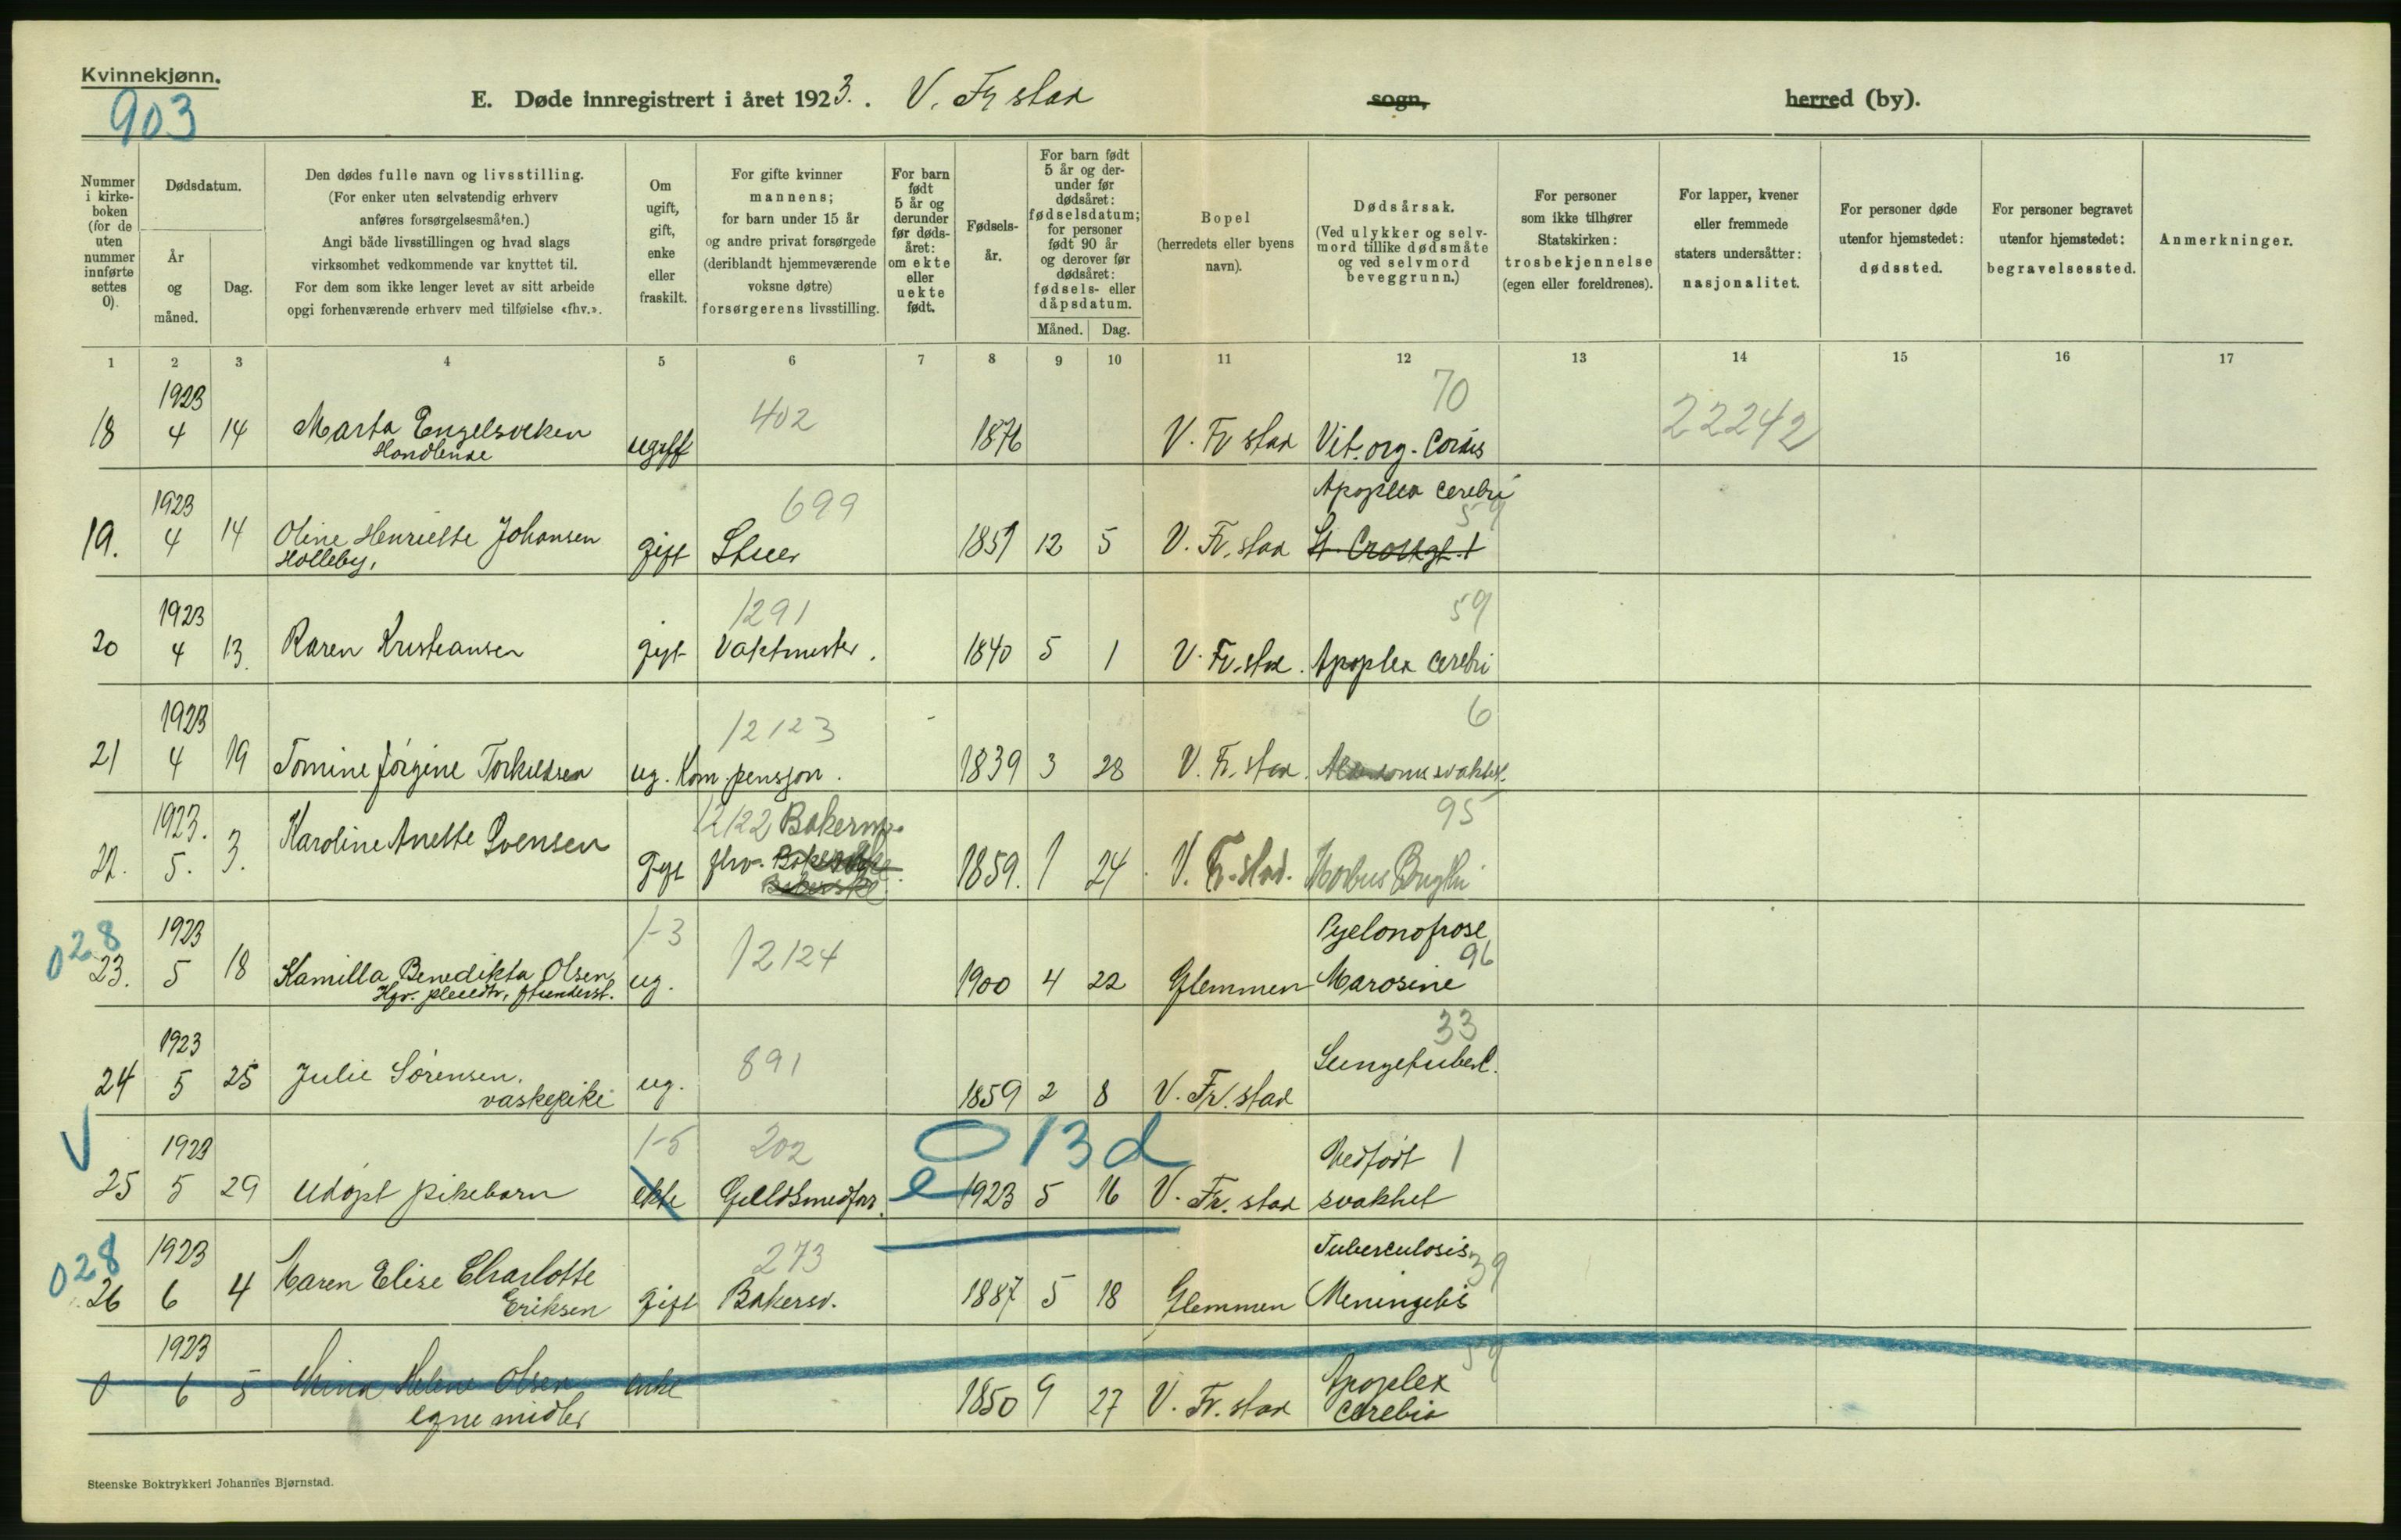 Kvinnekjønn.
903
E. Døde innregistrert i året 1923. V. Fr stad sogn, herred (by).
Nummer i kirke-boken (for de uten nummer innførte settes 0).
Dødsdatum.
År og måned.
Dag.
Den dødes fulle navn og livsstilling.
(For enker uten selvstendig erhverv
anføres forsørgelsesmåten.)
Angi både livsstillingen og hvad slags
virksomhet vedkommende var knyttet til.
For dem som ikke lenger levet av sitt arbeide
opgi forhenværende erhverv med tilføielse «fhv.».
Om ugift, gift, enke eller fraskilt.
For gifte kvinner
mannens;
for barn under 15 år
og andre privat forsørgede
(deriblandt hjemmeværende
voksne døtre)
forsørgerens livsstilling.
For barn født 5 år og derunder før døds-året: om ekte eller uekte født.
Fødsels-år.
For barn født
5 år og der-
under før
dødsåret:
fødselsdatum;
for personer
født 90 år
og derover før
dødsåret:
fødsels- eller
dåpsdatum.
Måned. Dag.
Bopel
(herredets eller byens
navn).
Dødsårsak.
(Ved ulykker og selv-
mord tillike dødsmåte
og ved selvmord
beveggrunn.)
For personer
som ikke tilhører
Statskirken:
trosbekjennelse
(egen eller foreldrenes).
For lapper, kvener
eller fremmede
staters undersåtter:
nasjonalitet.
For personer døde
utenfor hjemstedet:
dødssted.
For personer begravet
utenfor hjemstedet:
begravelsessted.
Anmerkninger.
1 2 3 4 5 6 7 8 9 10 11 12 13 14 15 16 17
1923 402 70 22242
18 4 14 Marta Engelsviken ugift 1876 V. Fr stad Vit. org. Cordis
Handlende
1923 699 Apoplex cerebri 59
19. 4 14 Oline Henriette Johansen gift Stuer 1851 12 5 V. Fr. stad
Holleby,
1923 1291 59
20 4 13. Karen Kristiansen gift Vaktmester. 1840 5 1 V. Fr. stad. Apoplex cerebri
1923 12123 6
21 4 19 Tomine Jørgine Torkildsen ug. Kom. pensjon. 1839 3 28 V. Fr. stad. Alderdomssvakhet.
1923. 12122 95
22. 5. 3. Karoline Anette Svensen Gift fhv. 1859. 1 24 V. Fr. stad. Morbus Brightii
028 1923 1-3 12124 96
23. 5 18 Kamilla Benedikta Olsen, ug. 1900 4 22 Glemmen
1923 891 33
24 5 25 Julie Sørensen, ug. 1859 2 8 V. Fr. stad Lungetuberk.
vaskepike
1923 1-5 202 013d Medfødt 1
25 5 29 Udøpt pikebarn ekte Gullsmedfor. e 1923 5 16 V. Fr. stad svakhet
028 1923 273 Tuberculosis 39
26 6 4 Maren Elise Charlotte Eriksen gift Bakersv. 1887 5 18 Glemmen Meningitis
1923 59
0 6 5 Mina Helene Olsen enke 1850 9 27 V. Fr. stad Apoplex cerebri
egne midler
Steenske Boktrykkeri Johannes Bjørnstad.